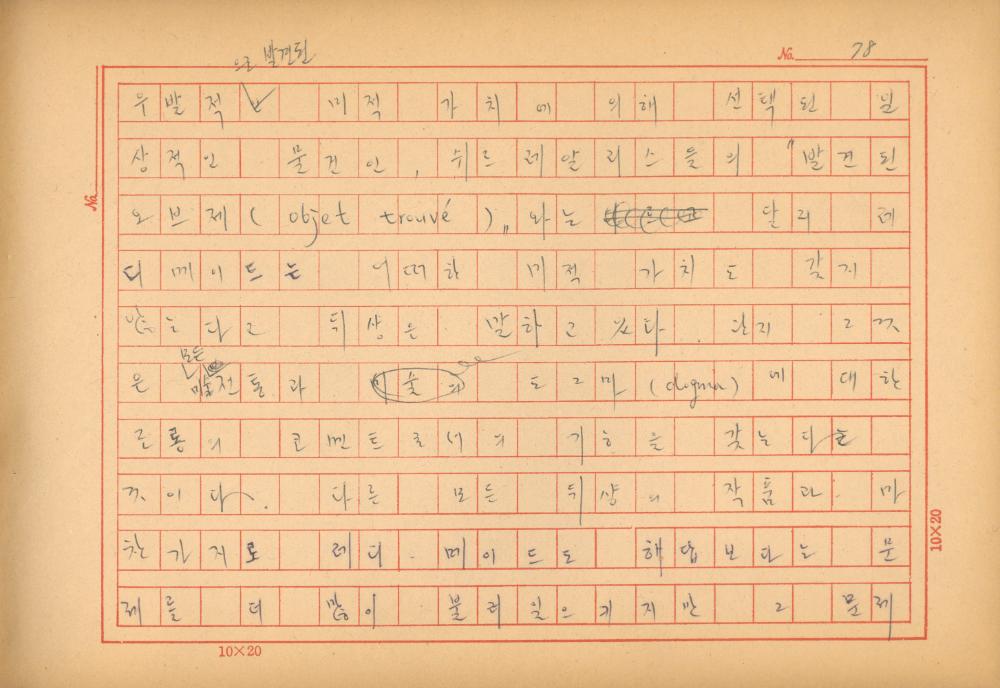 으로 발견된
No. 78
우발적 미적 가치에 의해 선택된 일
상적인 물건인, 쉬르레알리스들의 "발견된
오브제(objet trouvé)" 와는 달리 레
디메이드는 어떠한 미적 가치도 갖지
않는다고 뒤샹은 말하고 있다. 단지 그것
모든
은 전통과 미술의 도그마(dogma)에 대한
의 코멘트로서의 기능을 갖는다는
것이다. 다른 모든 뒤샹의 작품과 마
찬가지로 레디·메이드도 해답보다는 문
제를 더 많이 불러일으키지만 그 문제
No.
10×20
10×20